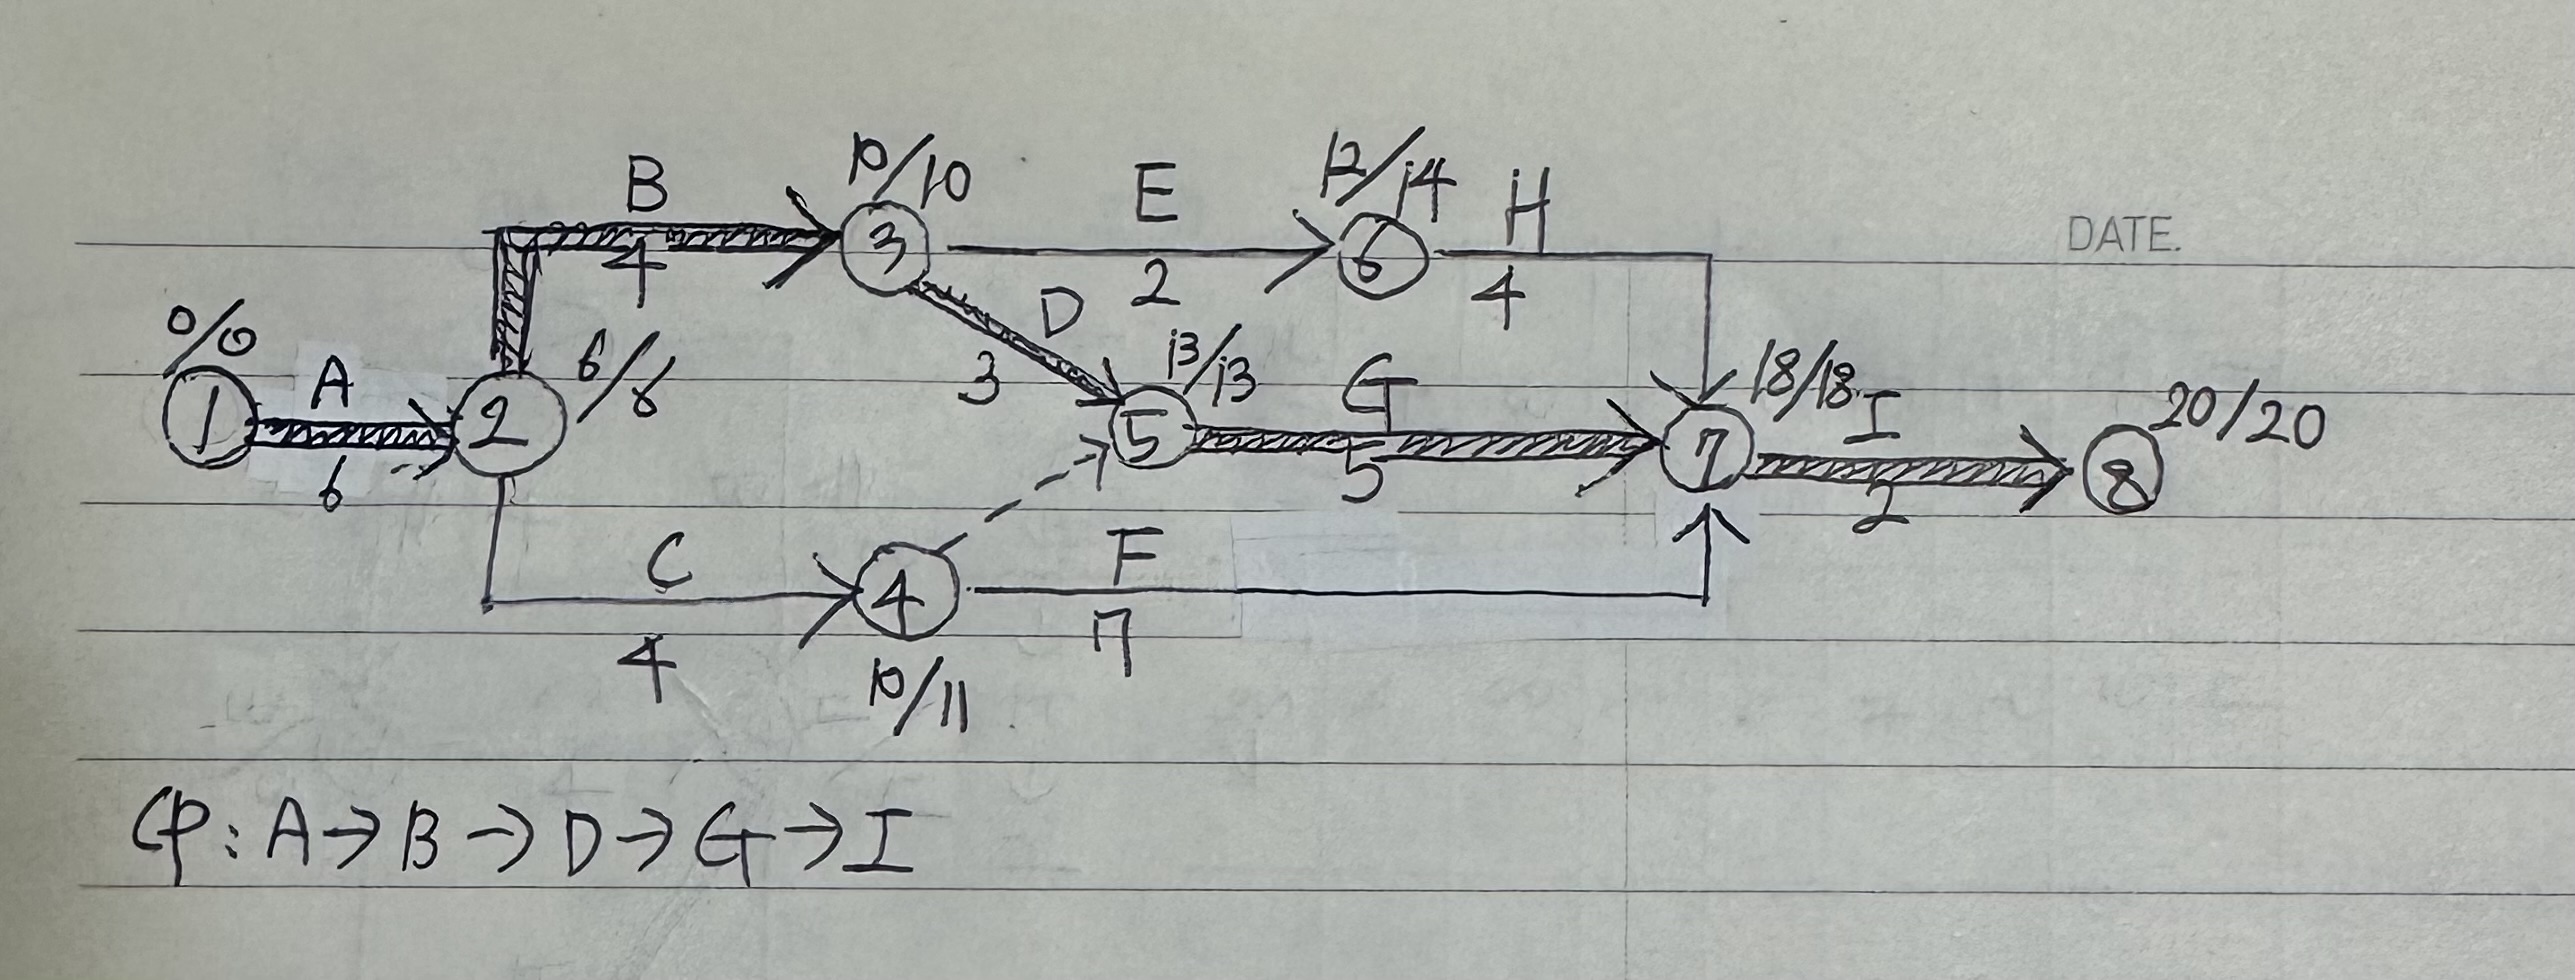 B
10/10
E
12/14
H
4
3
2
6
4
DATE.
0/0
A
6/6
D
3
13/13
G
18/18
I
20/20
1
2
5
7
8
6
5
2
C
4
F
4
7
10/11
CP: A→B→D→G→I